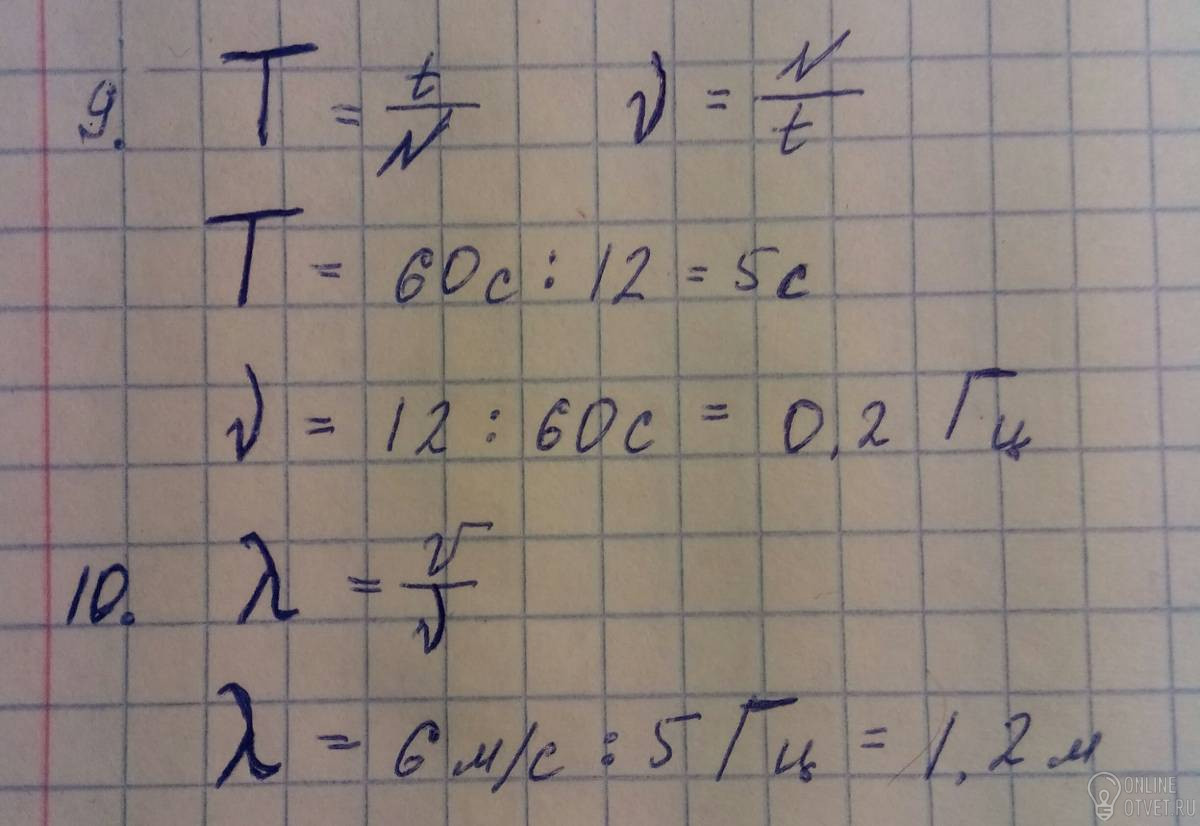 9. T = t/N ν = N/t
T = 60с : 12 = 5с
ν = 12 : 60с = 0,2 Гц
10. λ = v/ν
λ = 6 м/с : 5 Гц = 1,2 м
ONLINE
OTVET.RU